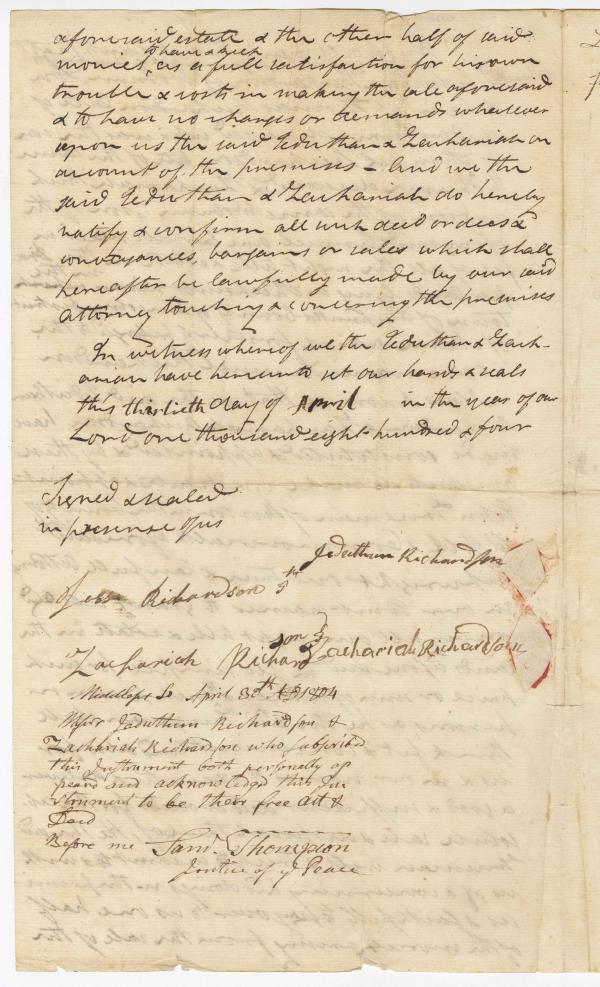 aforesaid estate & the other half of said
to have & keep
monies, as a full satisfaction for his own
trouble & costs in making the sale aforesaid
& to have no charges or demands whatever
upon us the said Jeduthan & Zachariah on
account of the premises - And we the
said Jeduthan & Zachariah do hereby
ratify & confirm all such deed or deeds &
conveyances, bargains or sales which shall
hereafter be lawfully made by our said
attorney touching & concerning the premises
In witness whereof we the Jeduthan & Zach-
ariah have hereunto set our hands & seals
this thirtieth day of April in the year of our
Lord one thousand eight hundred & four
Signed & sealed
in presense of us
Jeduthun Richardson
Richardson 5th
Zachariah Richardson 3d
Zachariah Richardson
Middlesex Ss April 30th 1804
Jeduthun Richardson &
Zachariah Richardson who subscribed
this Instrument both personally ap
peard and acknowledgd this In
strument to be their free act &
Deed
Before me Saml. Thompson
Justice of ye Peace